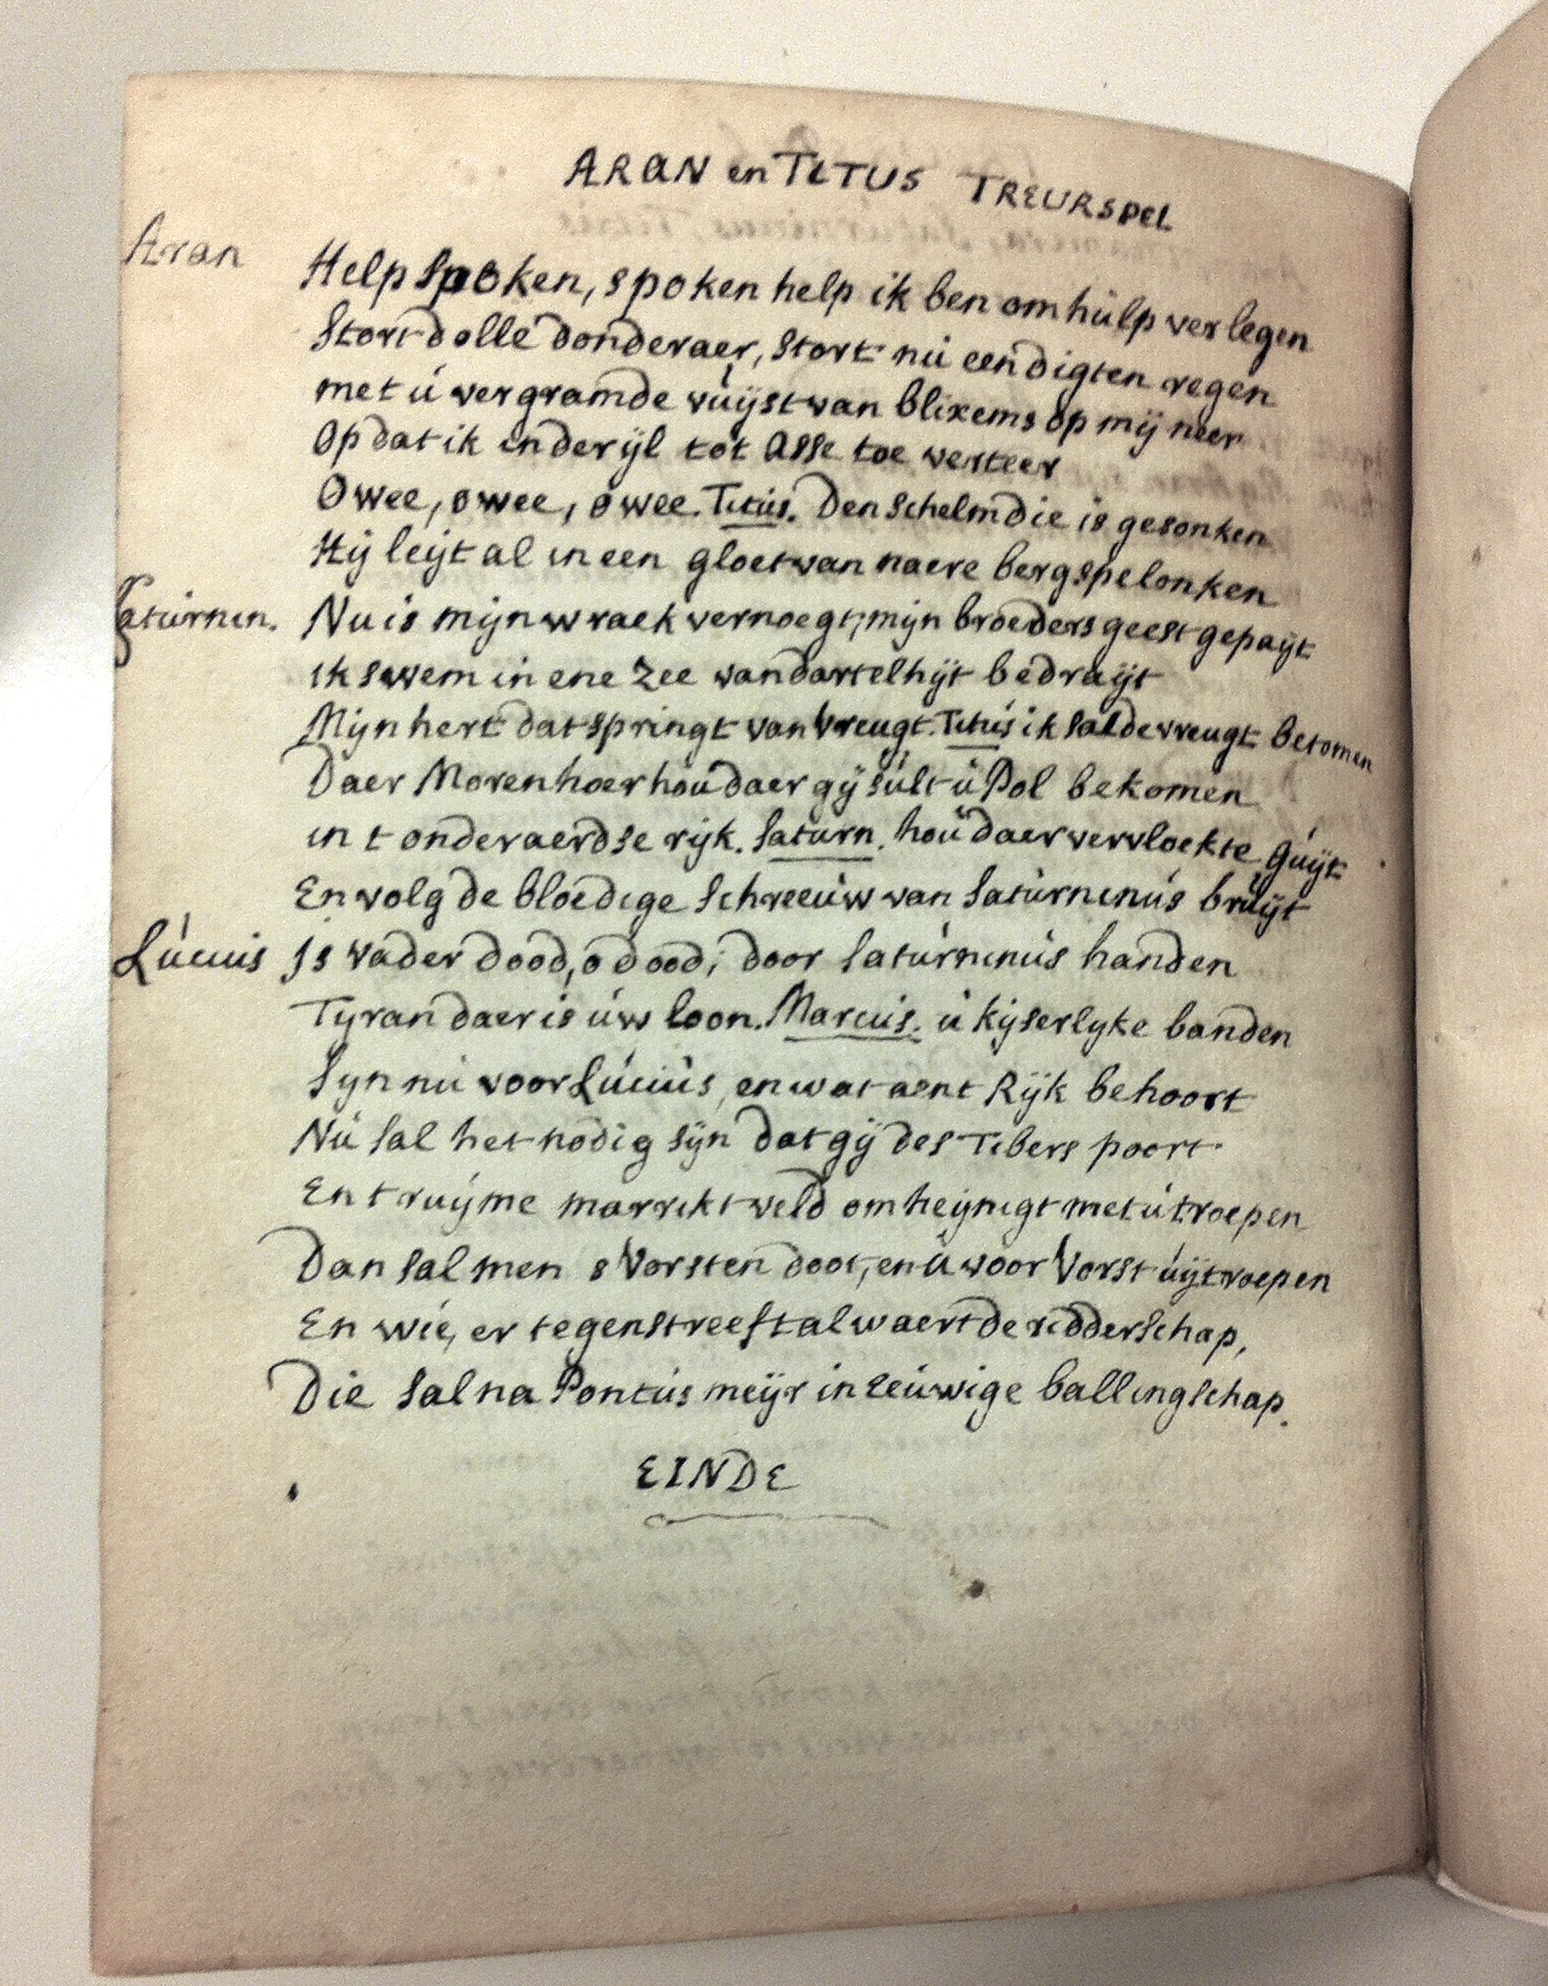 ARAN en TITUS TREURSPEL
Aran Help Spoken, spoken help ik ben om hulp verlegen
Stort dolle donderaer, stort nú een digten regen
met ú vergramde vúÿst van blixems op mij neer
Op dat ik inder ÿl tot Asse toe verteer
O wee, o wee, o wee. Titús. Den schelm die is gesonken
Hij leijt al in een gloet van naere bergspelonken
Saturnin. Nu is mijn wraek vernoegt, mijn broeders geest gepaÿt
ik swem in ene zee van dartelhÿt bedraÿt
Mijn hert dat springt van vreugt. Titús ik sal de vreugt betomen
Daer Morenhoer hou daer gÿ súlt ú Pol bekomen
in t onderaerdse rijk. Saturn. hou daer vervloekte gúÿt
En volg de bloedige schreeúw van Satúrninús brúÿt
Lúcius Is vader dood, o dood; door satúrninús handen
Tyran daer is úw loon. Marcús. ú kÿserlyke banden
Syn nú voor Lúciús, en wat aent Rÿk behoort
Nú sal het nodig sÿn dat gÿ des Tibers poort
En t ruÿme marrikt veld omheÿnigt met ú troepen
Dan sal men s Vorsten doot, en ú voor Vorst úÿtroepen
En wie, er tegenstreeft alwaert de ridderschap,
Die sal na Pontús meÿr in eeúwige ballingschap.
EINDE